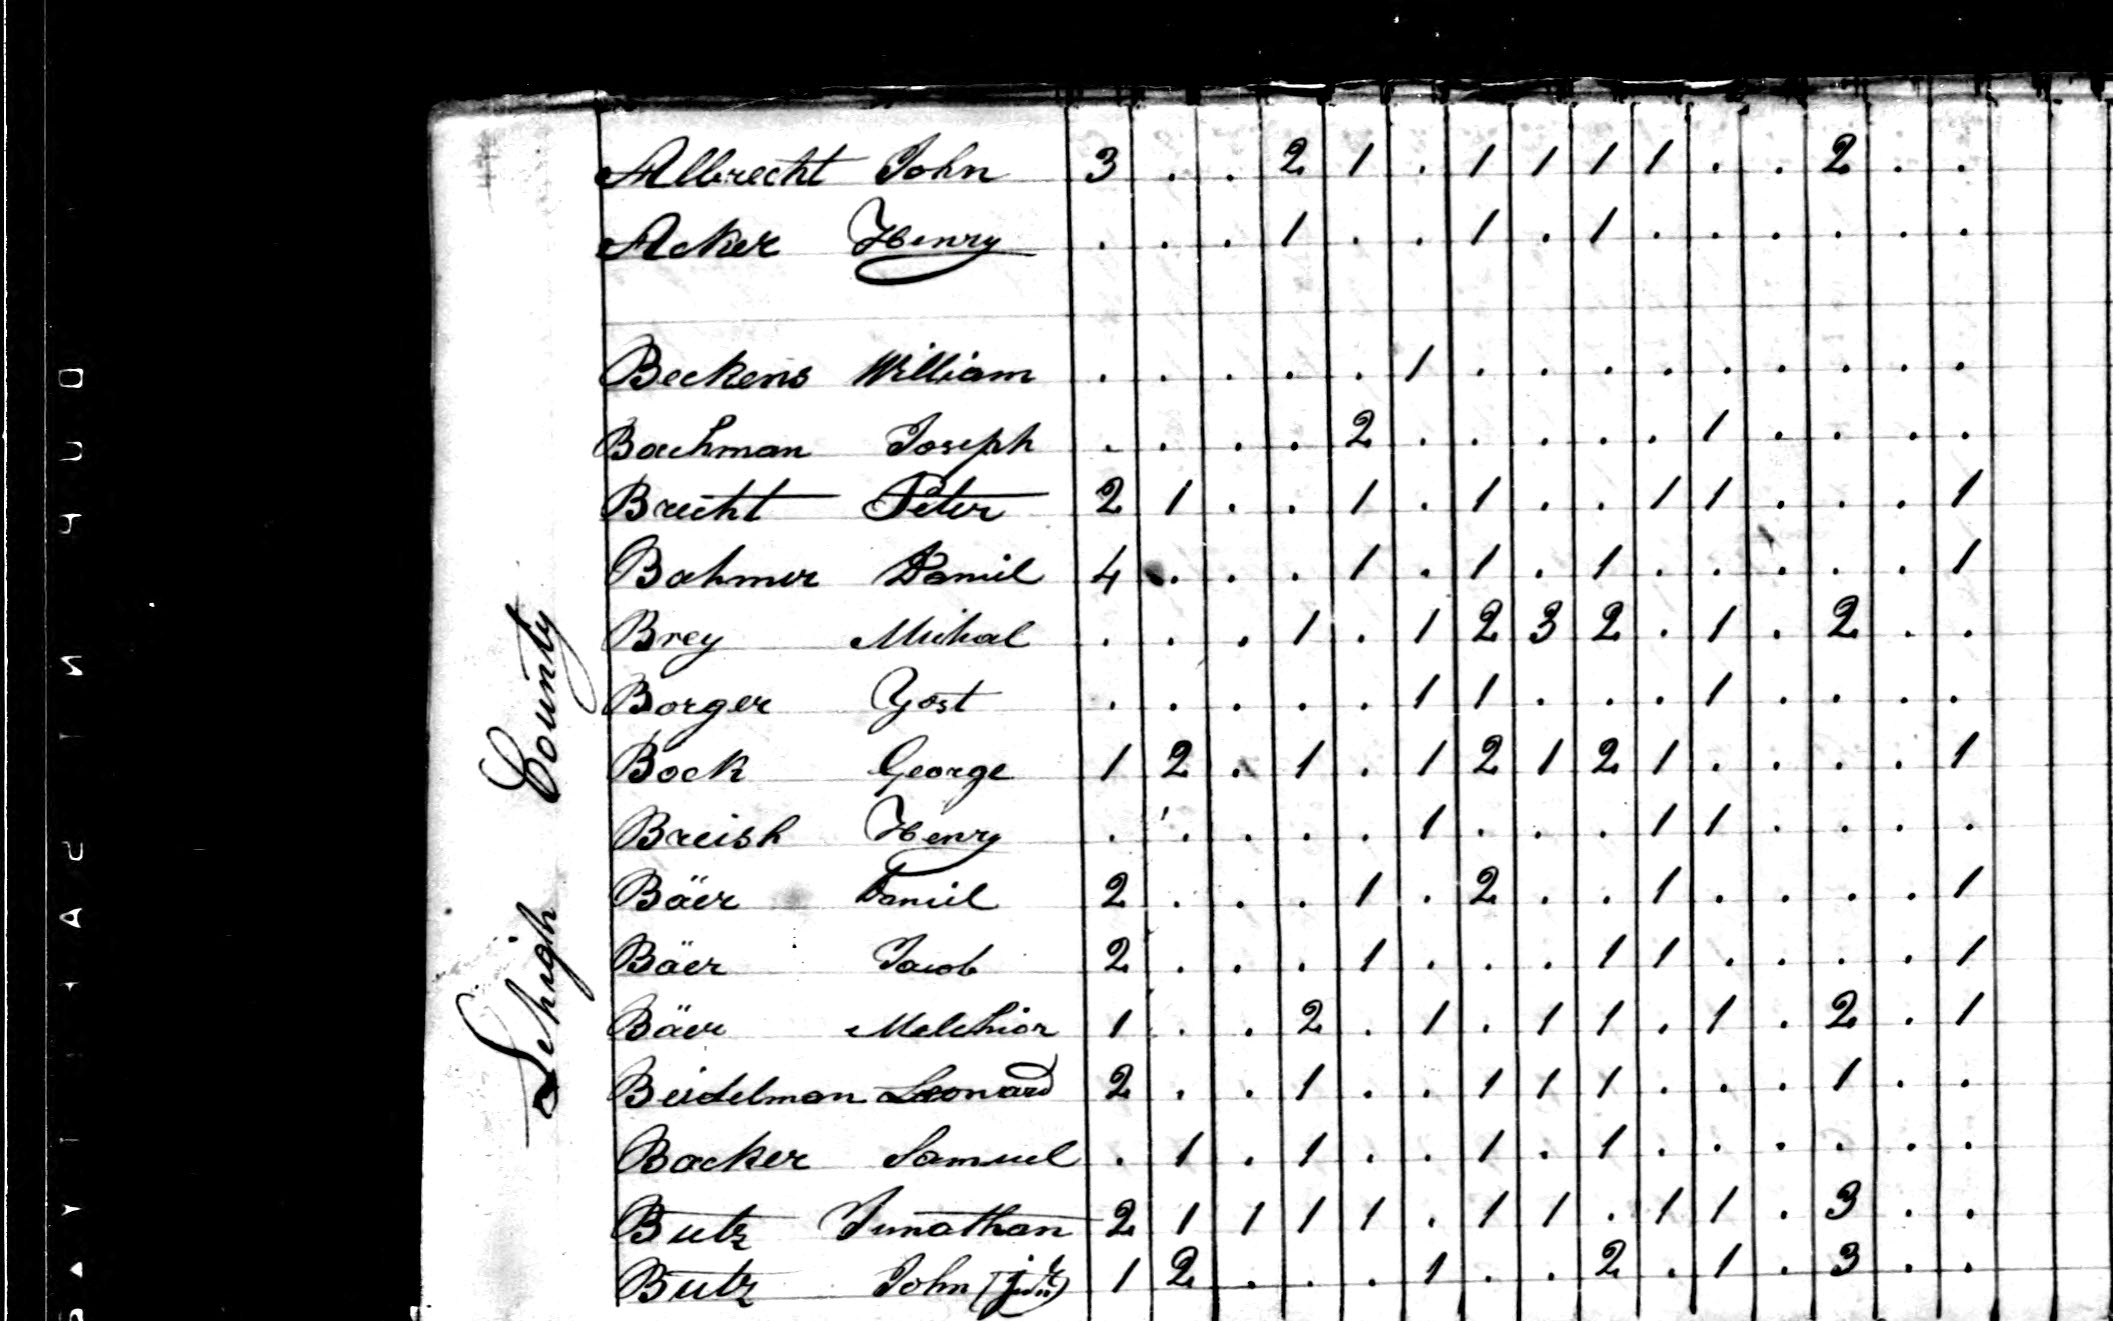 Albrecht John 3 . . 2 1 . 1 1 1 1 . . 2 . .
Acker Henry . . . 1 . . 1 . 1 . . . . . .
Beckens William . . . . . 1 . . . . . . . . .
Bachman Joseph . . . . 2 . . . . . 1 . . . .
Brecht Peter 2 1 . . 1 . 1 . . 1 1 . . . 1
Bahmer Daniel 4 . . . 1 . 1 . 1 . . . . . 1
Brey Michal . . . 1 . 1 2 3 2 . 1 . 2 . .
Borger Yost . . . . . 1 1 . . . 1 . . . .
Bock George 1 2 . 1 . 1 2 1 2 1 . . . . 1
Breish Henry . . . . . 1 . . . 1 1 . . . .
Bäer Daniel 2 . . . 1 . 2 . . 1 . . . . 1
Bäer Jacob 2 . . . 1 . . . 1 1 . . . . 1
Bäer Melchior 1 . . 2 . 1 . 1 1 . 1 . 2 . 1
Beidelman Leonard 2 . . 1 . . 1 1 1 . . . 1 . .
Backer Samuel . 1 . 1 . . 1 . 1 . . . . . .
Butz Junathan 2 1 1 1 1 . 1 1 . 1 1 . 3 . .
Butz John 1 2 . . . 1 . . 2 . 1 . 3 . .
Lehigh County